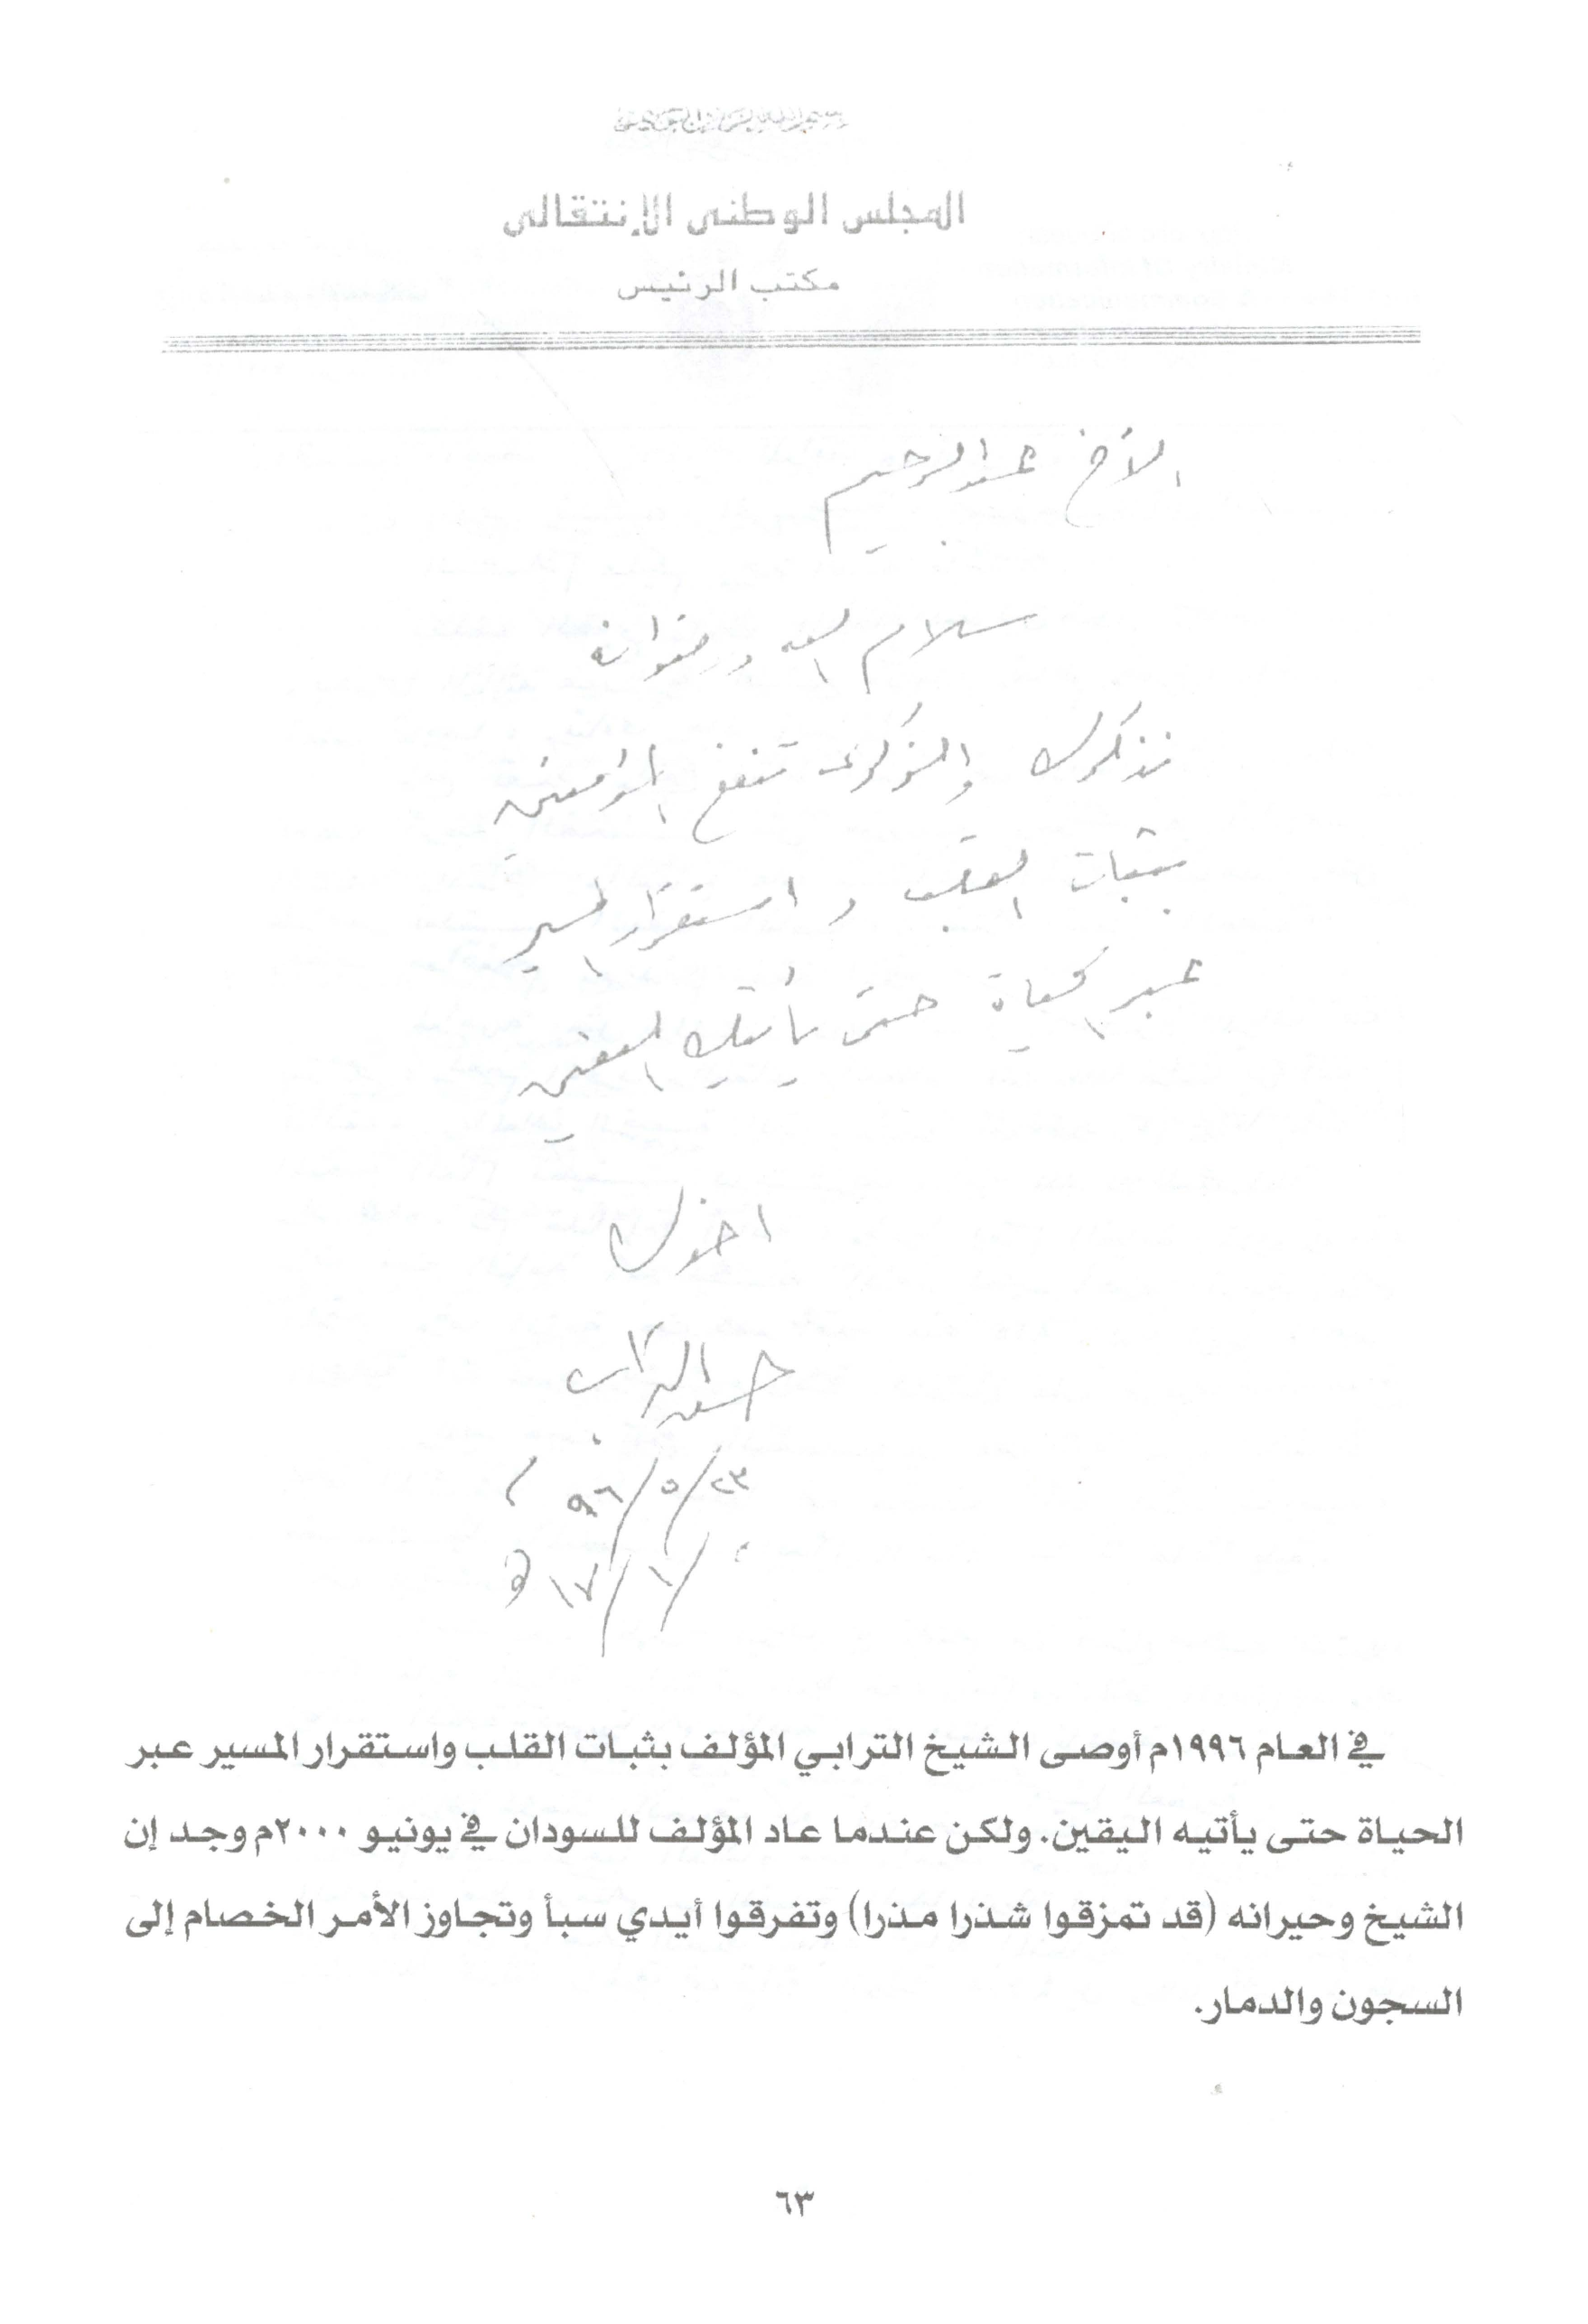 بسم الله الرحمن الرحيم
المجلس الوطنى الإنتقالى
مكتب الرئيس
الأخ عبدالرحيم
سلام الله ورضوانه
نذكرك والذكرى تنفع المؤمنين
بثبات القلب واستقرار المسير
عبر الحياة حتى يأتيك اليقين
اخوك
حسن الترابي
٢٣/٥/٩٦م
/١/١٧ه
في العام ١٩٩٦م أوصى الشيخ الترابي المؤلف بثبات القلب واستقرار المسير عبر
الحياة حتى يأتيه اليقين. ولكن عندما عاد المؤلف للسودان في يونيو ٢٠٠٠م وجد إن
الشيخ وحيرانه (قد تمزقوا شذرا مذرا) وتفرقوا أيدي سبأ وتجاوز الأمر الخصام إلى
السجون والدمار.
٦٣